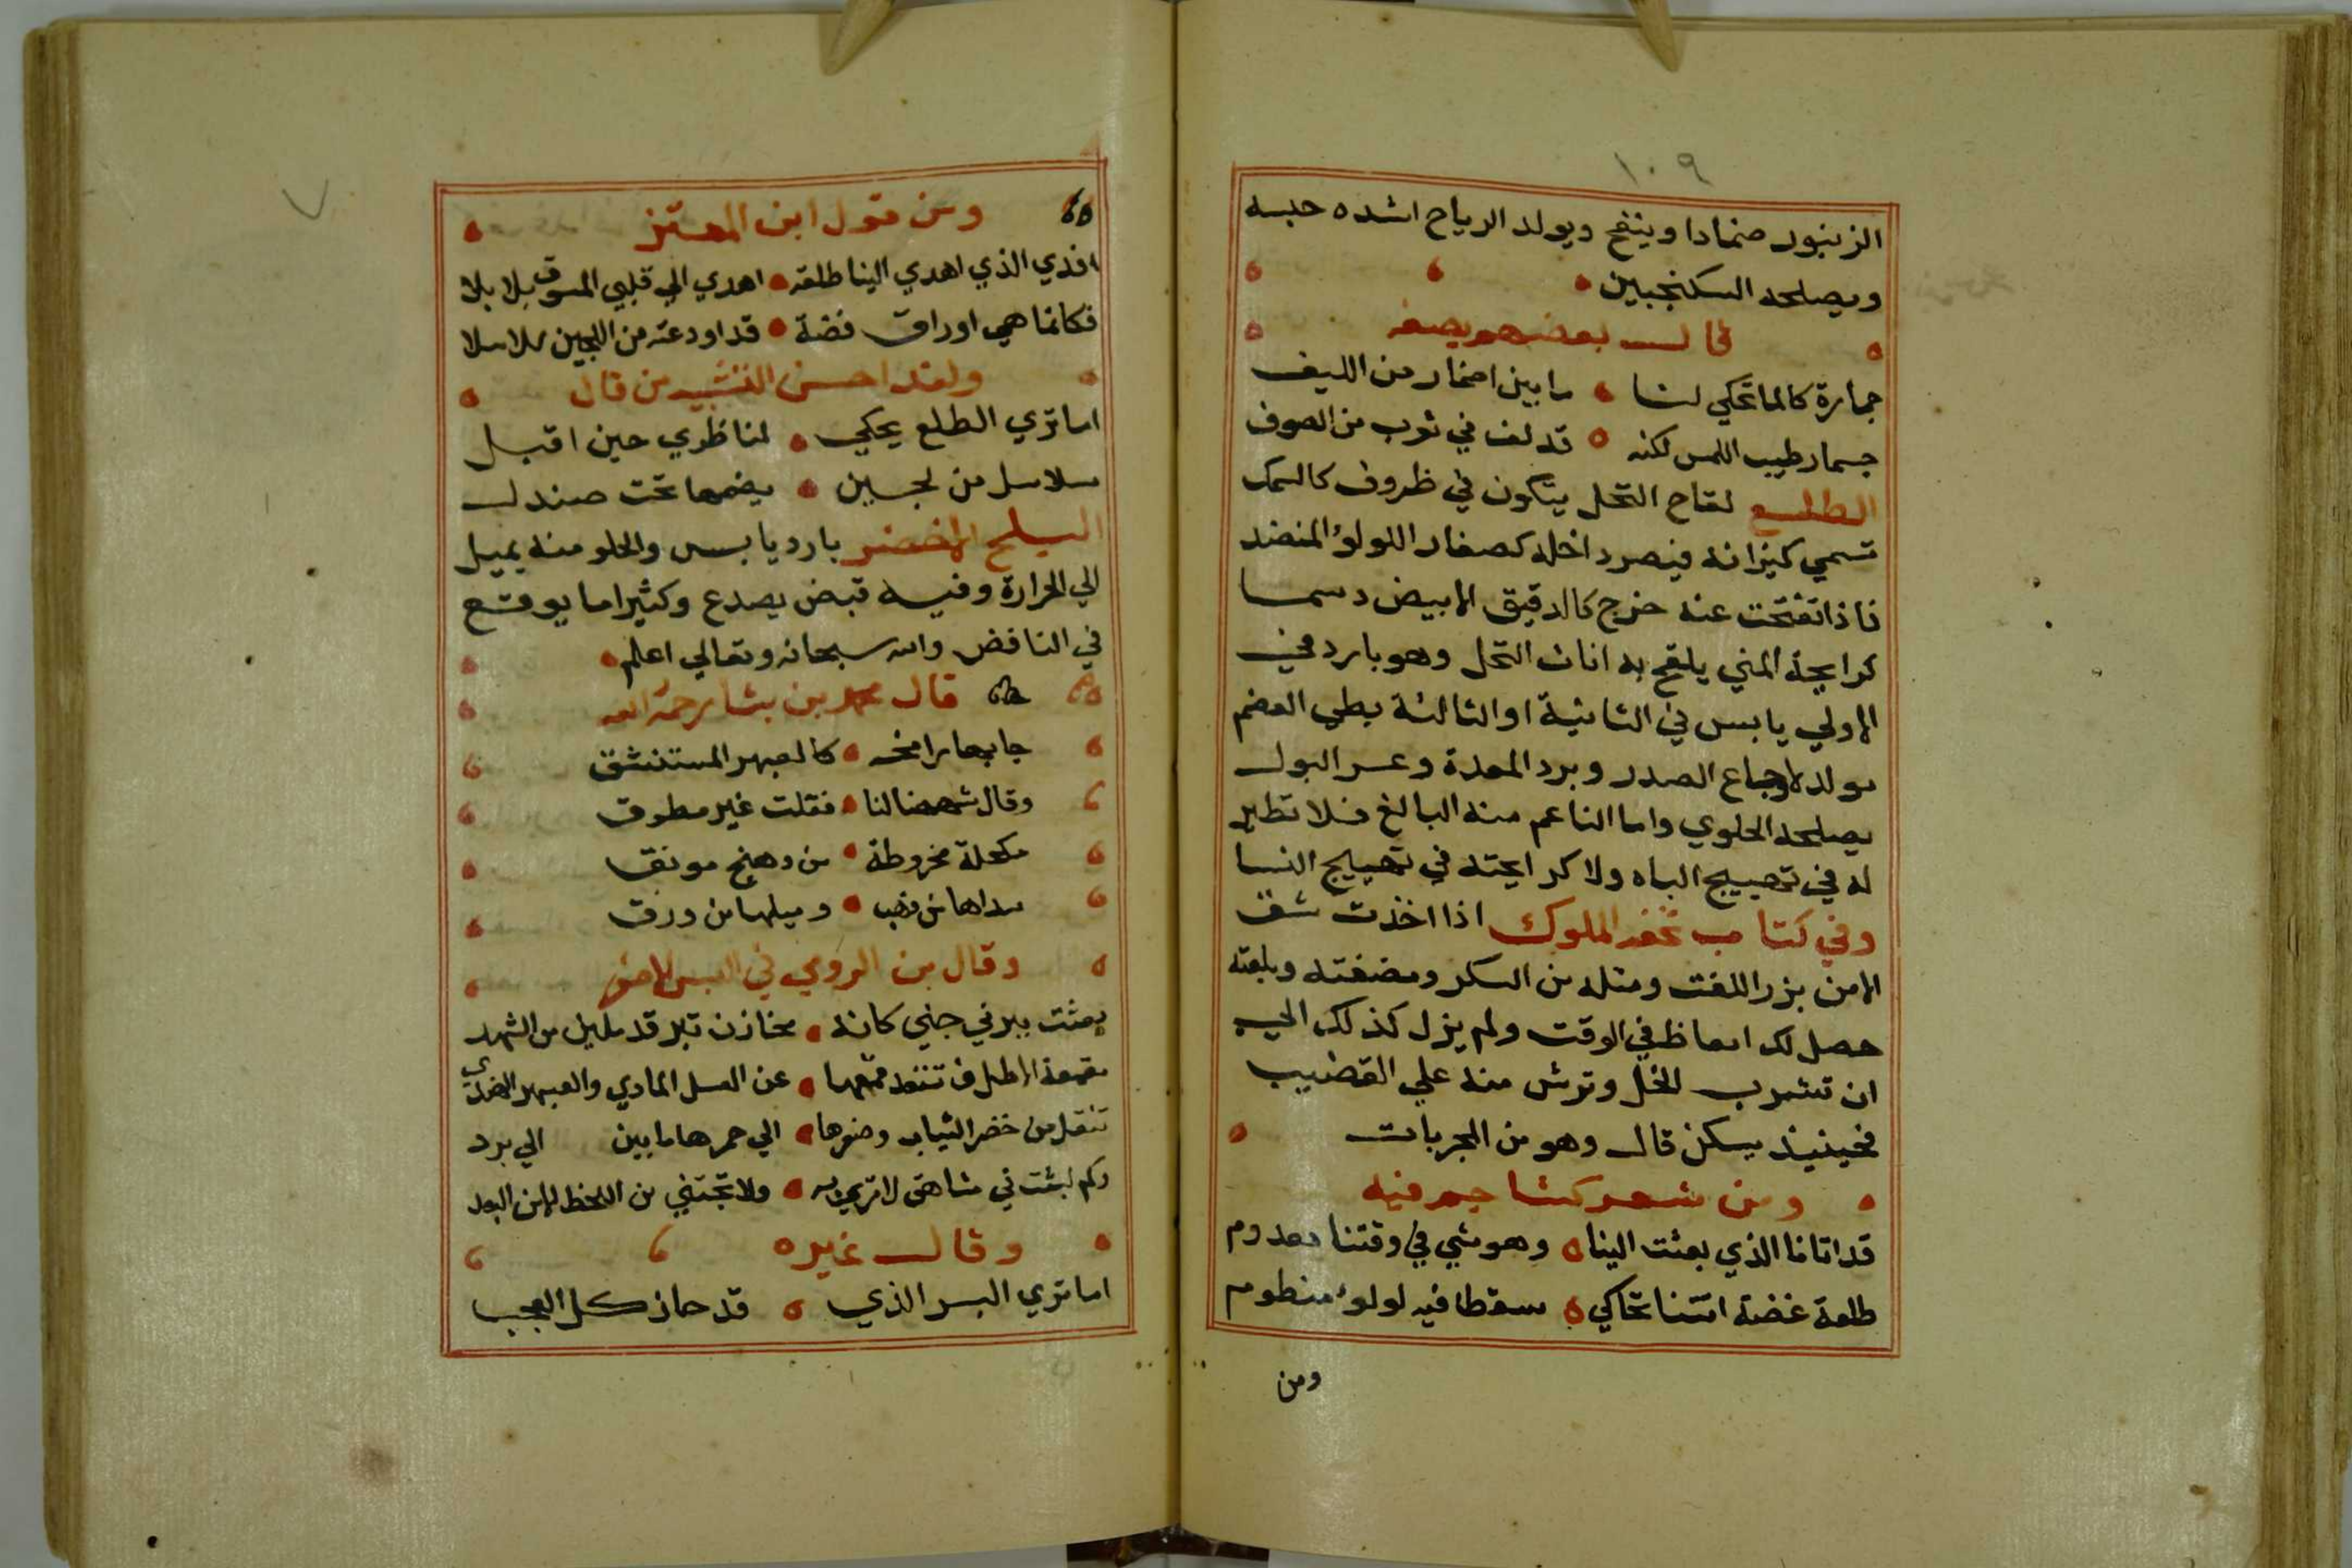 ١٠٩
الزنبور ضمادا وينفخ ويولد الرياح اشده حبسه
ويصلحه السكنجبين
قال بعضهم يصفه
جمارة كالماتحكي لنا ما بين اضمار من الليف
جسما رطيب اللمس لكنه قد لف في ثوب من الصوف
الطلع لقاح النخل يتكون في ظروف كالسمك
تسمي كيزانه فيصر داخله كصغار اللولؤ المنضد
فاذا تفتحت عنه خرج كالدقيق الابيض دسما
كرايحة المني يلقح به اناث النخل وهو بارد في
الاولي يابس في الثانية او الثالثة بطي الهضم
مولد لاوجاع الصدر وبرد المعدة وعسر البول
يصلحه الحلوي واما الناعم منه البالغ فلا تطير
له في تهييج الباه ولا كرايحته في تهييج النسا
وفي كتاب تحفه الملوك اذا اخذت شف
الا من بزر اللفت ومثله من السكر ومضغته وبلعته
حصل لك انعاظ في الوقت ولم يزل كذلك الي
ان تشرب الخل وترش منه علي القضيب
فحينيذ يسكن قال وهو من المجربات
ومن شعر كشاجم فيه
قد اتانا الذي بعثت الينا وهو شي في وقتنا معدوم
طلعة غضة اتتنا تحاكي سفطا فيه لولؤ منظوم
ومن
٧
ومن قول ابن المعتز
افدي الذي اهدي الينا طلعة اهدي الي قلبي المشوق بلابلا
فكانما هي اوراق فضة قد اودعته من اللجين سلاسلا
ولقد احسن التشبيه من قال
اما تري الطلع يحكي لناظري حين اقبل
سلاسل من لجين يضمها تحت صندل
البلح الاخضر بارد يابس والحلو منه يميل
الي الحرارة وفيه قبض يصدع وكثيرا ما يوقع
في النافض والله سبحانه وتعالي اعلم
قال محمد بن بشا رحمه الله
جا بها رامخه كالعبهر المستنشق
وقال شمهنا لنا فقلت غير مطرق
مكحلة مخروطة من دهنج مونق
سداها من ذهب وميلها من ورق
وقال بن الرومي في البسر الاحمر
بعثت ببرني جني كانه مخازن تبر قد ملين من الشهد
مقمعة الاطراف تنقد قمعها عن العسل المادي والعبهر الهندي
تنقل من خضر الثياب وصفرها الي حمرها ما بين الي برد
وكم لبثت في شاهق لا تري به ولا تجتني من اللحظ الا من البعد
وقال غيره
اما تري البسر الذي قد حاز كل العجب